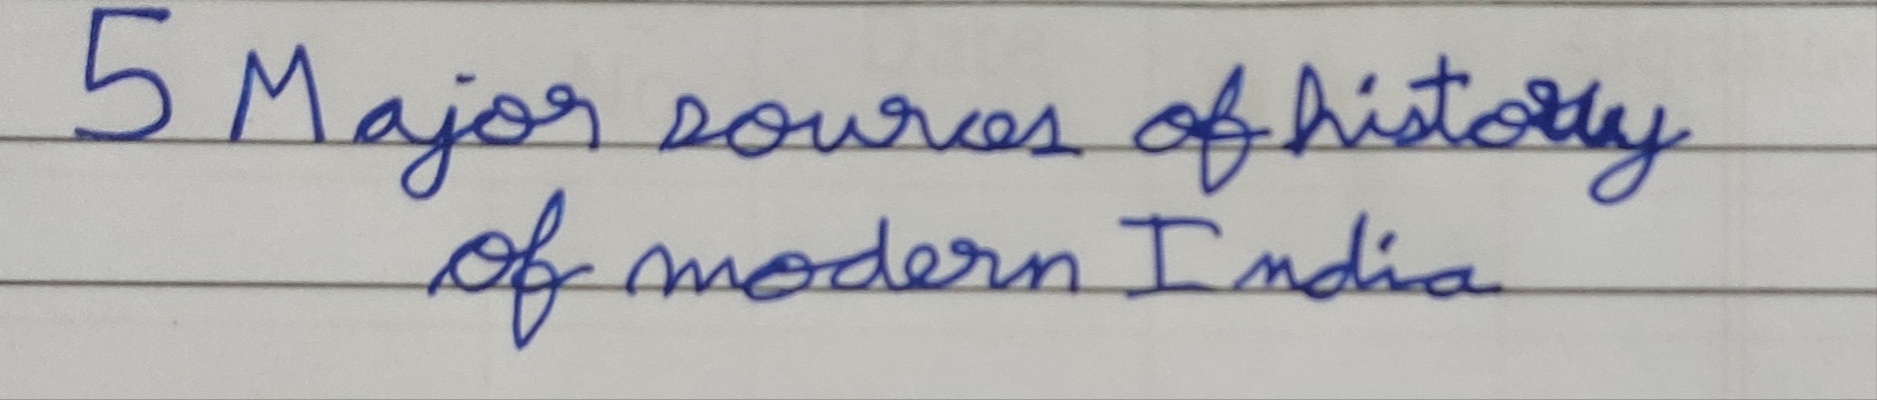 5 Major sources of history
of modern India